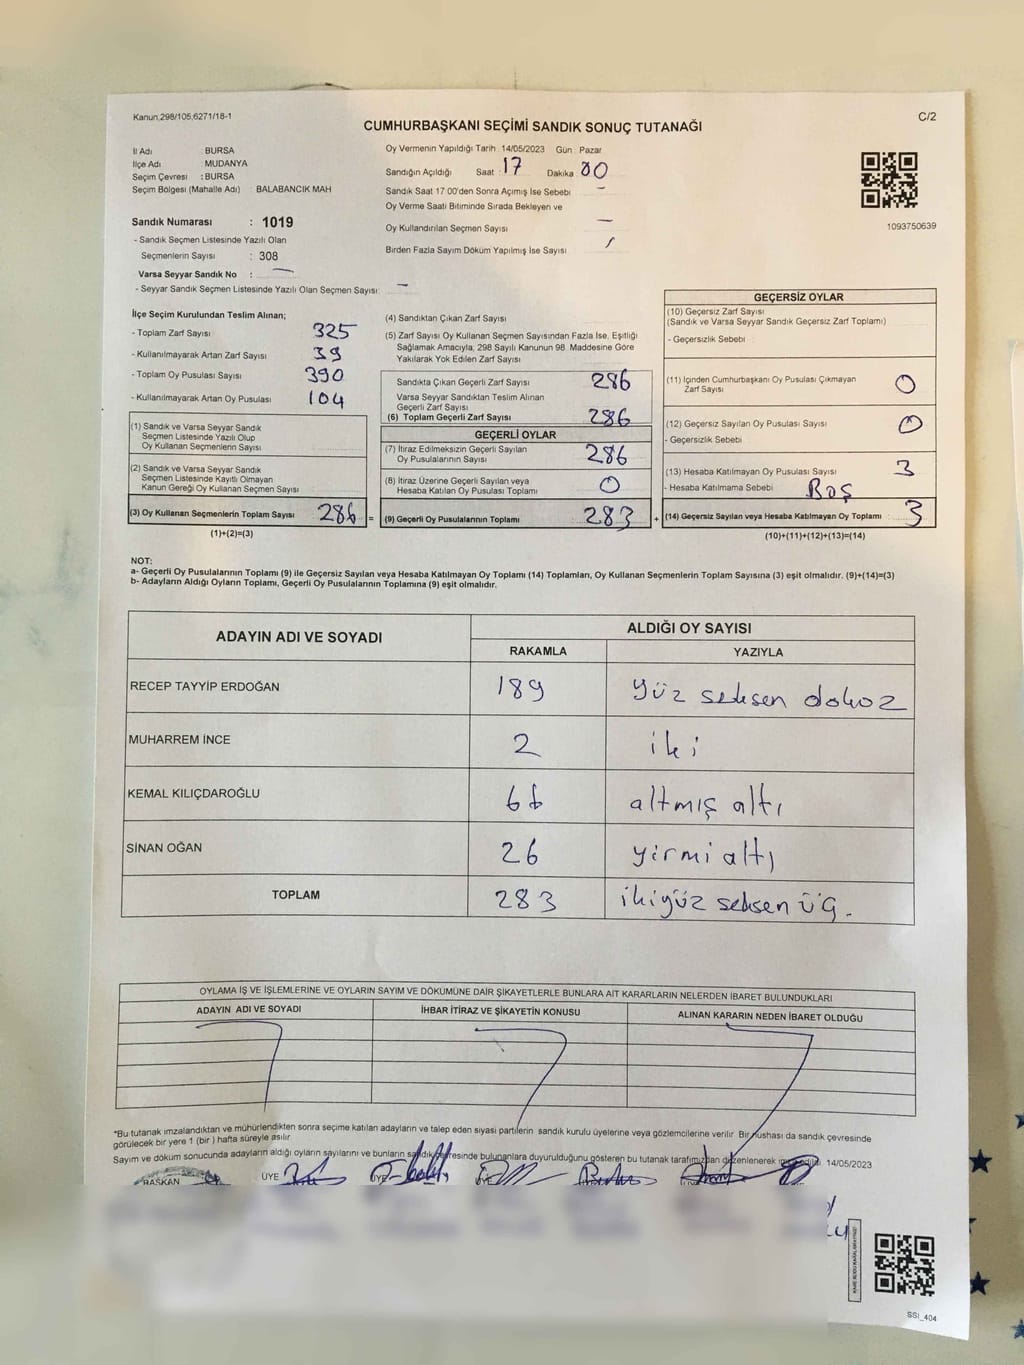 Kanun;298/105;6271/18-1
C/2
CUMHURBAŞKANI SEÇİMİ SANDIK SONUÇ TUTANAĞI
İl Adı : BURSA
İlçe Adı : MUDANYA
Seçim Çevresi : BURSA
Seçim Bölgesi (Mahalle Adı) BALABANCIK MAH
Sandık Numarası : 1019
- Sandık Seçmen Listesinde Yazılı Olan
Seçmenlerin Sayısı : 308
Varsa Seyyar Sandık No : —
- Seyyar Sandık Seçmen Listesinde Yazılı Olan Seçmen Sayısı: —
Oy Vermenin Yapıldığı Tarih : 14/05/2023 Gün : Pazar
Sandığın Açıldığı Saat : 17 Dakika : 00
Sandık Saat 17:00'den Sonra Açımış İse Sebebi —
Oy Verme Saati Bitiminde Sırada Bekleyen ve
Oy Kullandırılan Seçmen Sayısı —
Birden Fazla Sayım Döküm Yapılmış İse Sayısı /
1093750639
İlçe Seçim Kurulundan Teslim Alınan;
- Toplam Zarf Sayısı 325
- Kullanılmayarak Artan Zarf Sayısı 39
- Toplam Oy Pusulası Sayısı 390
- Kullanılmayarak Artan Oy Pusulası 104
(1) Sandık ve Varsa Seyyar Sandık
Seçmen Listesinde Yazılı Olup
Oy Kullanan Seçmenlerin Sayısı
(2) Sandık ve Varsa Seyyar Sandık
Seçmen Listesinde Kayıtlı Olmayan
Kanun Gereği Oy Kullanan Seçmen Sayısı
(3) Oy Kullanan Seçmenlerin Toplam Sayısı 286 =
(1)+(2)=(3)
(4) Sandıktan Çıkan Zarf Sayısı
(5) Zarf Sayısı Oy Kullanan Seçmen Sayısından Fazla İse, Eşitliği
Sağlamak Amacıyla; 298 Sayılı Kanunun 98. Maddesine Göre
Yakılarak Yok Edilen Zarf Sayısı
Sandıkta Çıkan Geçerli Zarf Sayısı 286
Varsa Seyyar Sandıktan Teslim Alınan
Geçerli Zarf Sayısı
(6) Toplam Geçerli Zarf Sayısı 286
GEÇERLİ OYLAR
(7) İtiraz Edilmeksizin Geçerli Sayılan
Oy Pusulalarının Sayısı 286
(8) İtiraz Üzerine Geçerli Sayılan veya
Hesaba Katılan Oy Pusulası Toplamı 0
(9) Geçerli Oy Pusulalarının Toplamı 283 +
GEÇERSİZ OYLAR
(10) Geçersiz Zarf Sayısı
(Sandık ve Varsa Seyyar Sandık Geçersiz Zarf Toplamı)
- Geçersizlik Sebebi
(11) İçinden Cumhurbaşkanı Oy Pusulası Çıkmayan
Zarf Sayısı 0
(12) Geçersiz Sayılan Oy Pusulası Sayısı 0
- Geçersizlik Sebebi
(13) Hesaba Katılmayan Oy Pusulası Sayısı 3
- Hesaba Katılmama Sebebi Boş
(14) Geçersiz Sayılan veya Hesaba Katılmayan Oy Toplamı 3
(10)+(11)+(12)+(13)=(14)
NOT:
a- Geçerli Oy Pusulalarının Toplamı (9) ile Geçersiz Sayılan veya Hesaba Katılmayan Oy Toplamı (14) Toplamları, Oy Kullanan Seçmenlerin Toplam Sayısına (3) eşit olmalıdır. (9)+(14)=(3)
b- Adayların Aldığı Oyların Toplamı, Geçerli Oy Pusulalarının Toplamına (9) eşit olmalıdır.
ADAYIN ADI VE SOYADI
ALDIĞI OY SAYISI
RAKAMLA YAZIYLA
RECEP TAYYİP ERDOĞAN 189 yüz seksen dokuz
MUHARREM İNCE 2 iki
KEMAL KILIÇDAROĞLU 66 altmış altı
SİNAN OĞAN 26 yirmi altı
TOPLAM 283 ikiyüz seksen üç.
OYLAMA İŞ VE İŞLEMLERİNE VE OYLARIN SAYIM VE DÖKÜMÜNE DAİR ŞİKAYETLERLE BUNLARA AİT KARARLARIN NELERDEN İBARET BULUNDUKLARI
ADAYIN ADI VE SOYADI İHBAR İTİRAZ VE ŞİKAYETİN KONUSU ALINAN KARARIN NEDEN İBARET OLDUĞU
*Bu tutanak imzalandıktan ve mühürlendikten sonra seçime katılan adayların ve talep eden siyasi partilerin sandık kurulu üyelerine veya gözlemcilerine verilir. Bir nüshası da sandık çevresinde
görülecek bir yere 1 (bir) hafta süreyle asılır.
Sayım ve döküm sonucunda adayların aldığı oyların sayılarını ve bunların sandık çevresinde bulunanlara duyurulduğunu gösteren bu tutanak tarafımızdan düzenlenerek imza edildi. 14/05/2023
BAŞKAN ÜYE ÜYE
SSI_404